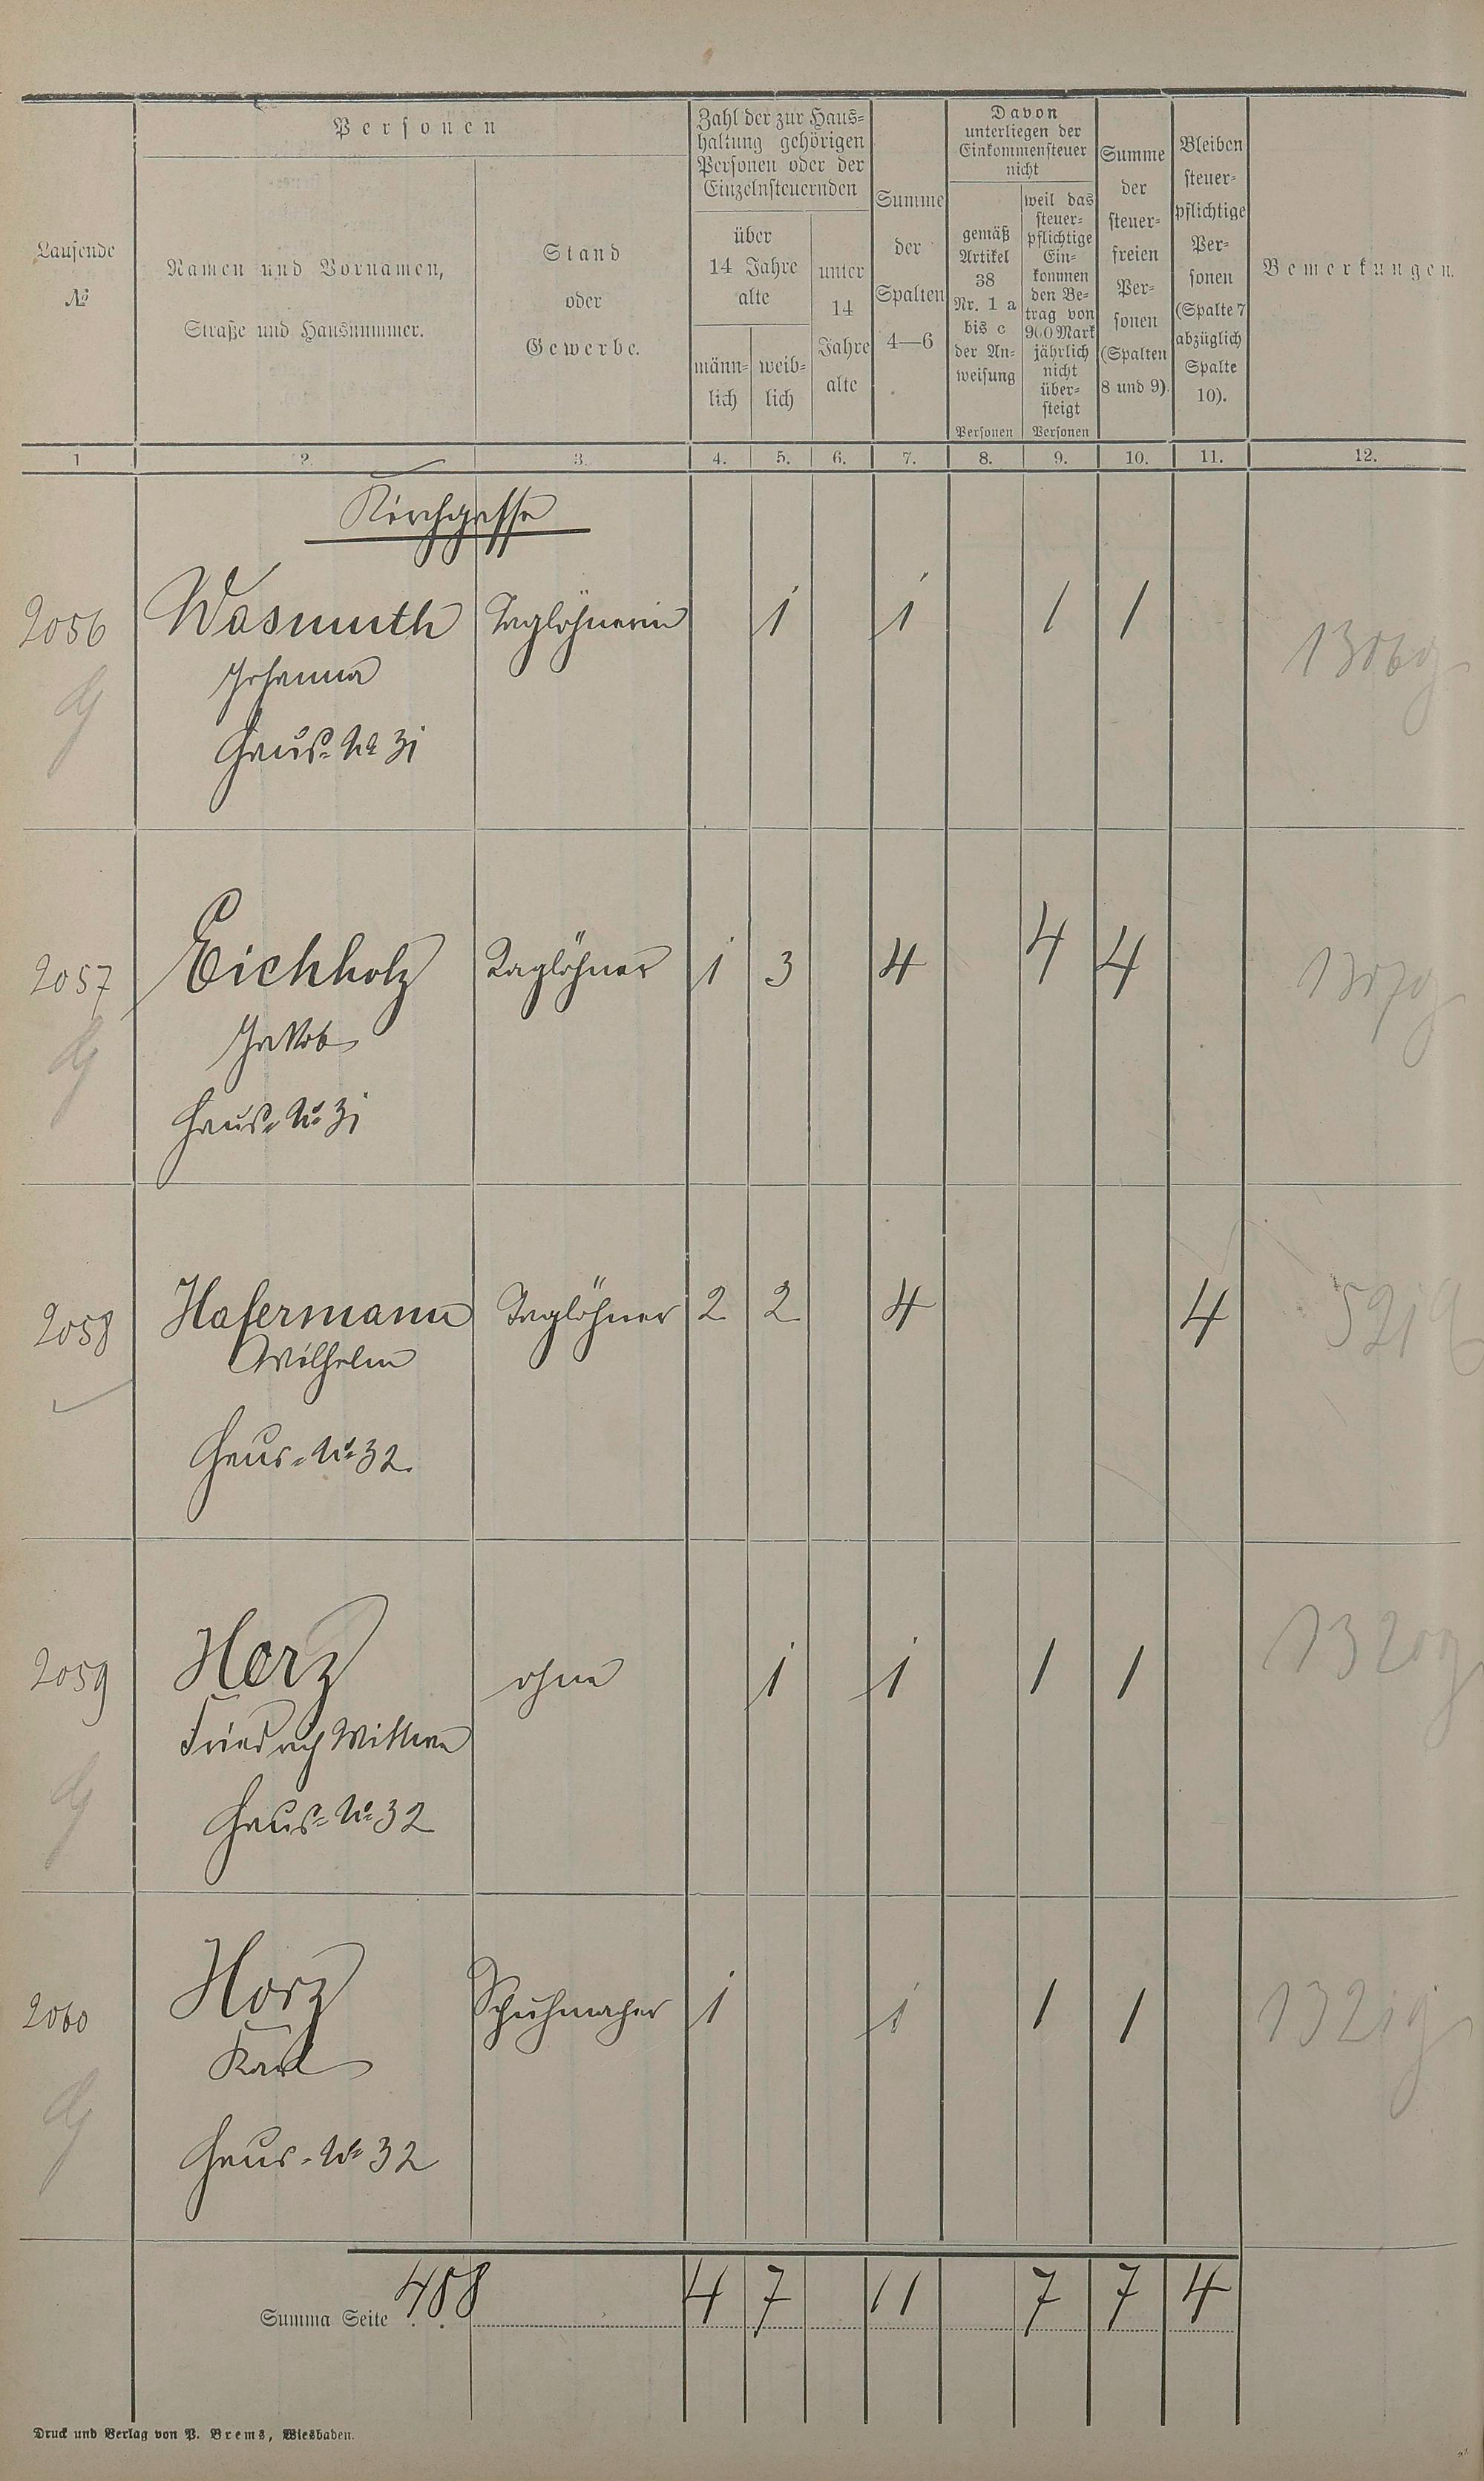 Personen
Zahl der zur Haus-
haltung gehörigen
Personen oder der
Einzelnsteuernden
Davon
unterliegen der
Einkommensteuer
nicht
Laufende
№
Namen und Vornamen,
Straße und Hausnummer.
Stand
oder
Gewerbe.
über
14 Jahre
alte
männ-
lich
weib-
lich
unter
14
Jahre
alte
Summe
der
Spalten
4—6
gemäß
Artikel
38
Nr. 1 a
bis c
der An-
weisung
Personen
weil das
steuer-
pflichtige
Ein-
kommen
den Be-
trag von
900 Mark
jährlich
nicht
über-
steigt
Personen
Summe
der
steuer-
freien
Per-
sonen
(Spalten
8 und 9).
Bleiben
steuer-
pflichtige
Per-
sonen
(Spalte 7
abzüglich
Spalte
10).
Bemerkungen.
1 2. 3. 4. 5. 6. 7. 8. 9. 10. 11. 12.
Kirchgasse
2056 Wasmuth Taglöhnerin 1 1 1 1
Johanna
Haus-№ 31
2057 Eichholz Taglöhner 1 3 4 4 4
Jakob
Haus-№ 31
2058 Hafermann Taglöhner 2 2 4 4
Wilhelm
Haus-№ 32.
2059 Herz ohne 1 1 1 1
Friedrich Wittwe
Haus-№ 32
2060 Horz Schuhmacher 1 1 1 1
Karl
Haus-№ 32
Summa Seite 4 7 11 7 7 4
Druck und Verlag von P. Brems, Wiesbaden.